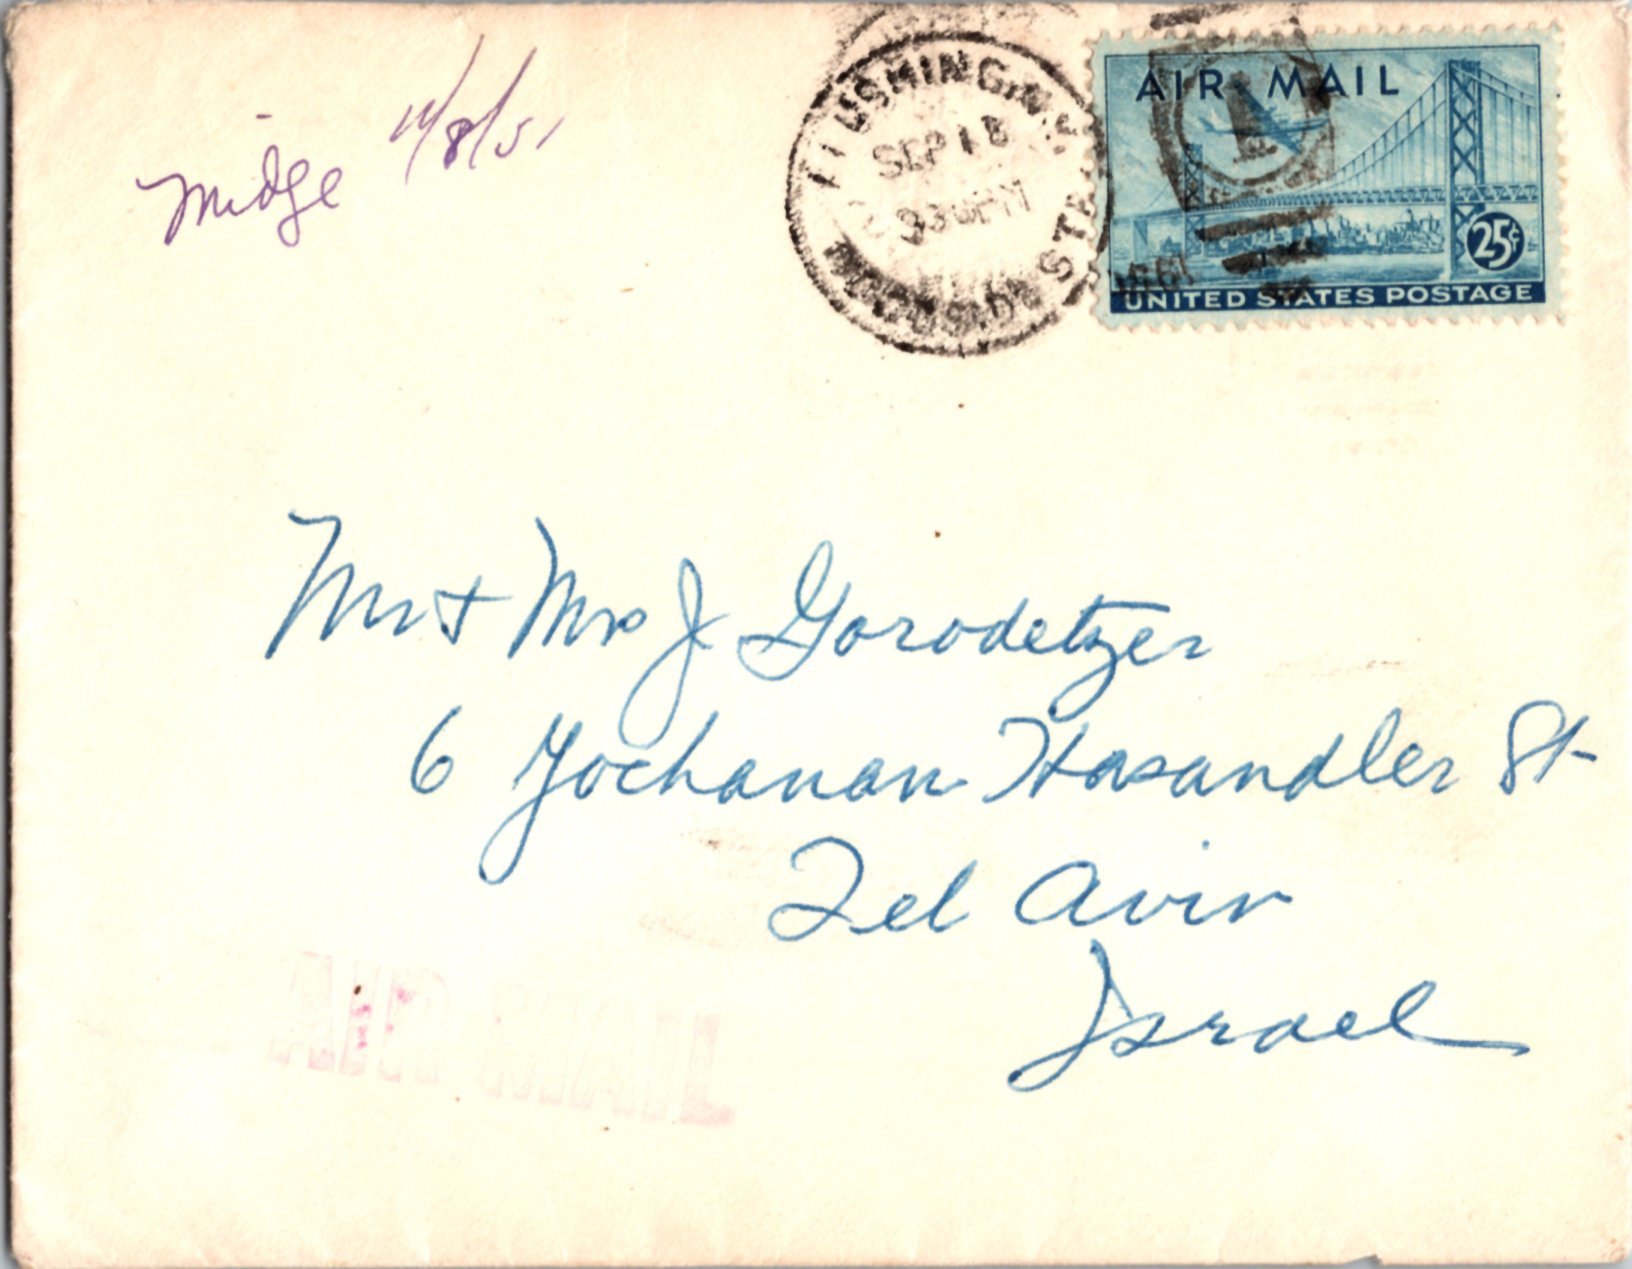 Midge 11/8/51
FLUSHING, N.Y.
SEP 18
930 PM
WOODSIDE STA.
AIR MAIL
25¢
UNITED STATES POSTAGE
Mr + Mrs J Gorodetzer
6 Yochanan Hasandler St
Tel Aviv
Israel